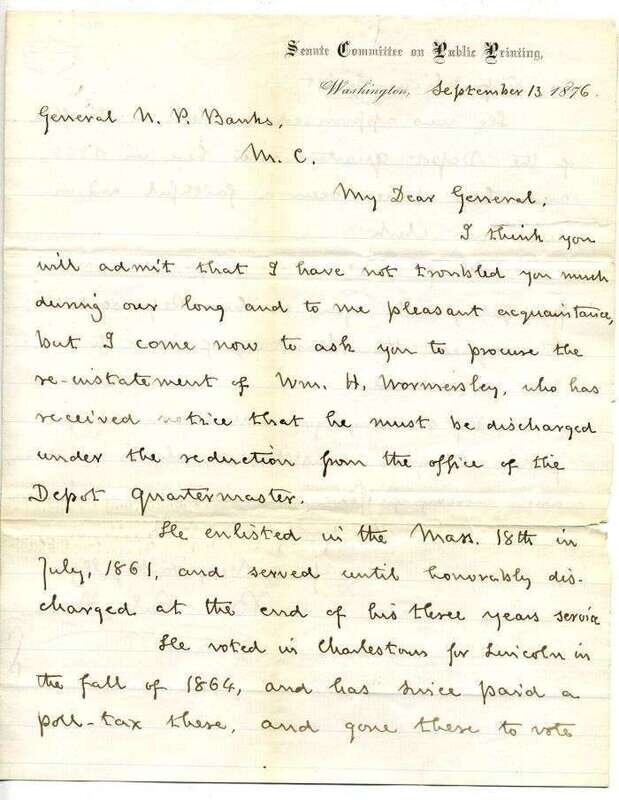 Senate Committee on Public Printing,
Washington, September 13 1876.
General N. P. Banks,
M. C.
My Dear General,
I think you
will admit that I have not troubled you much
during our long and to me pleasant acquaintance,
but I come now to ask you to procure the
re-instatement of Wm. H. Wormersley, who has
received notice that he must be discharged
under the reduction from the office of the
Depot Quartermaster.
He enlisted in the Mass. 18th in
July, 1861, and served until honorably dis-
charged at the end of his three years service
He voted in Charlestown for Lincoln in
the fall of 1864, and has since paid a
poll-tax there, and gone there to vote